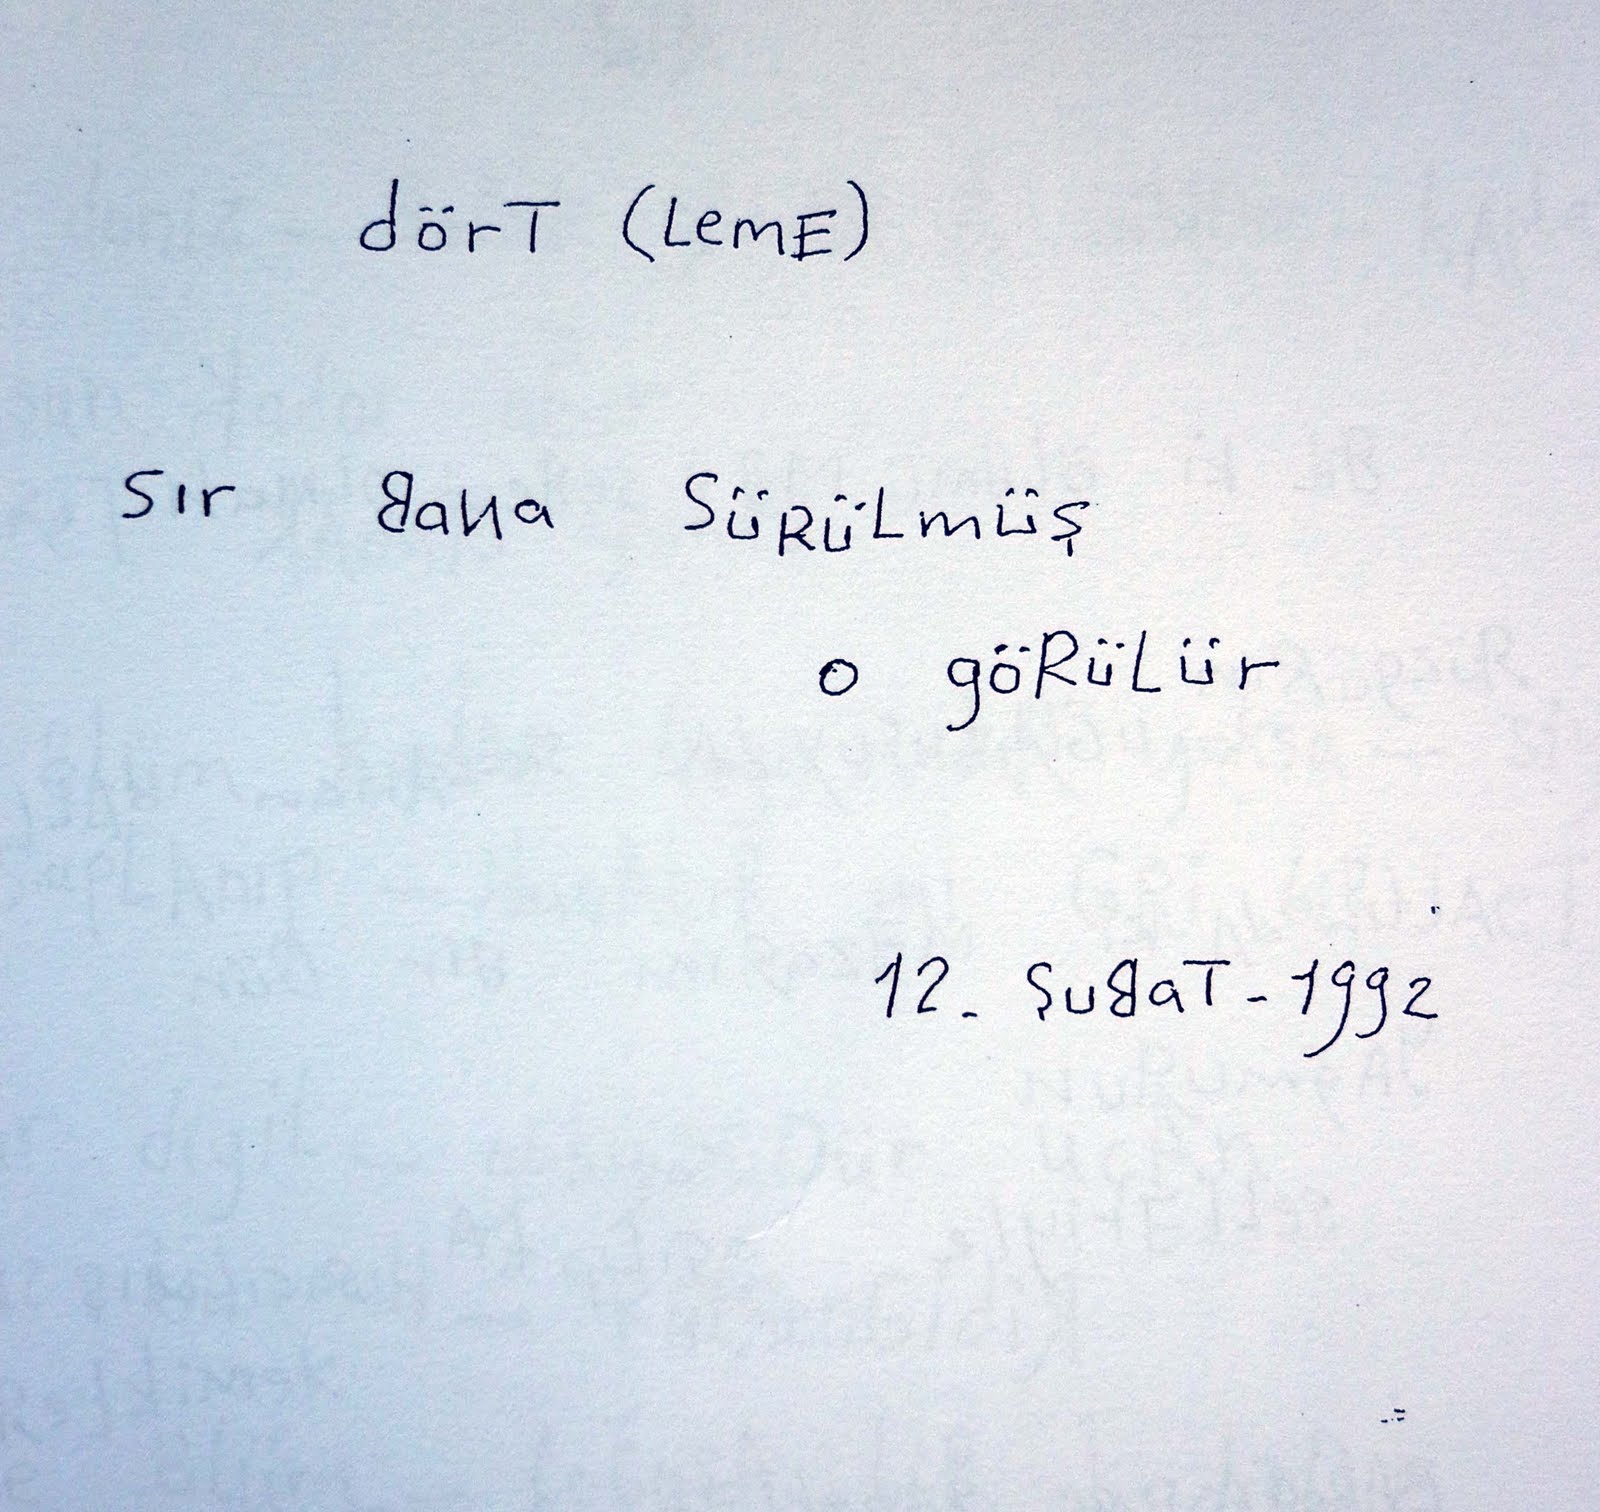 dörT (LemE)
sır BaNa SÜRÜLmüş
o göRÜLür
12. ŞuBaT-1992